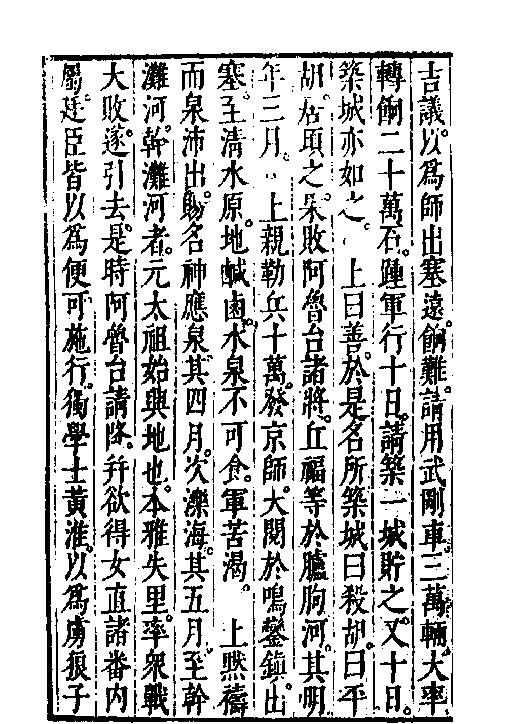 吉議。以爲師出塞遠。餉難。請用武剛車三萬輛。大率
轉餉二十萬石。踵軍行十日。請築一城貯之。又十日。
築城亦如之。上曰善。於是名所築城曰殺胡。曰平
胡。居頃之。果敗阿魯台諸將。丘福等於臚朐河。其明
年三月。上親勒兵十萬。發京師。大閱於鳴鑾鎮。出
塞。至清水原。地鹹鹵。水泉不可食。軍苦渴。上黙禱
而泉沛出。賜名神應泉。其四月。次濼海。其五月。至幹
灘河。幹灘河者。元太祖始興地也。本雅失里。率衆戰
大敗。遂引去。是時阿魯台請降。幷欲得女直諸番内
屬。廷臣皆以爲便可施行。獨學士黄淮。以爲虜狼子